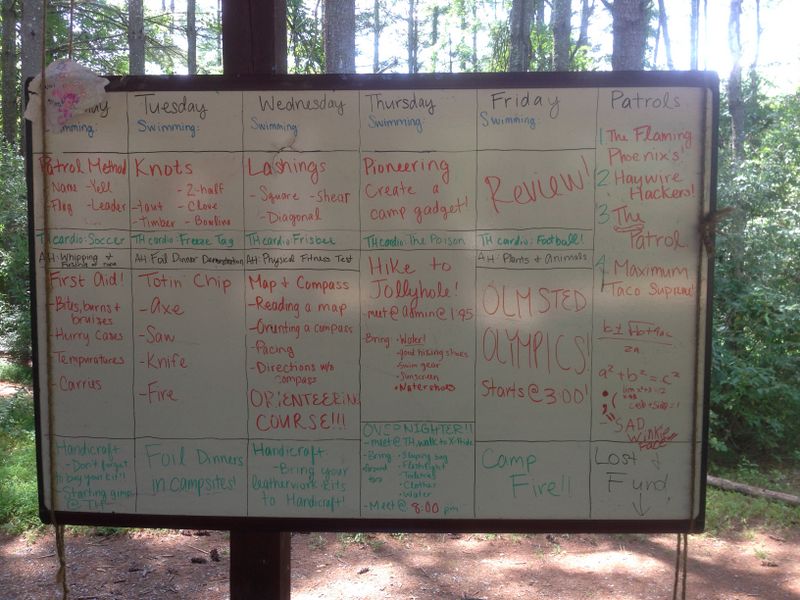 Tuesday
Swimming:
Knots
- 2-half
- taut - Clove
- Timber - Bowline
TH cardio: Freeze Tag
AH: Foil Dinner Demonstration
Totin' Chip
- Axe
- Saw
- Knife
- Fire
Foil Dinners
in campsites!
Swimming:
Patrol Method
- Name - Yell
- Flag - Leader
TH cardio: Soccer
AH: Whipping +
First Aid!
- Bites, burns +
bruises
- Hurry Cases
- Temperatures
- Carries
Handicraft
- Don't forget
to buy your kit!!
- Starting gimp
@ TH
Wednesday
Swimming:
Lashings
- Square - Shear
- Diagonal
TH cardio: Frisbee
AH: Physical Fitness Test
Map & Compass
- Reading a map
- Orienting a compass
- Pacing
- Directions w/o
compass
ORIENTEERING
COURSE!!!
Handicraft
- Bring your
leatherwork kits
to Handicraft!
Thursday
Swimming:
Pioneering
Create a
camp gadget!
TH cardio: The Poison
Hike to
Jollyhole!
- meet @ admin @ 1:45
Bring - Water!
- good hiking shoes
- Swim gear
- Sunscreen
- Watershoes
OVERNIGHTER!!
- meet @ TH, walk to
- Bring - Sleeping bag
- Flashlight
- Toiletries
- Clothes
- Water
- Meet @ 8:00 pm
Friday
Swimming:
Review!
TH cardio: Football!
AH: Plants & Animals
OLMSTED
OLYMPICS!
Starts @ 3:00!
Camp
Fire!!
Patrols
1 The Flaming
Phoenix's!
2 Haywire
Hackers!
3 The
Patrol
4 Maximum
Taco Supreme!
a²+b²=c²
;(
SAD
WINKIE
FACE
Lost +
Fund
↓